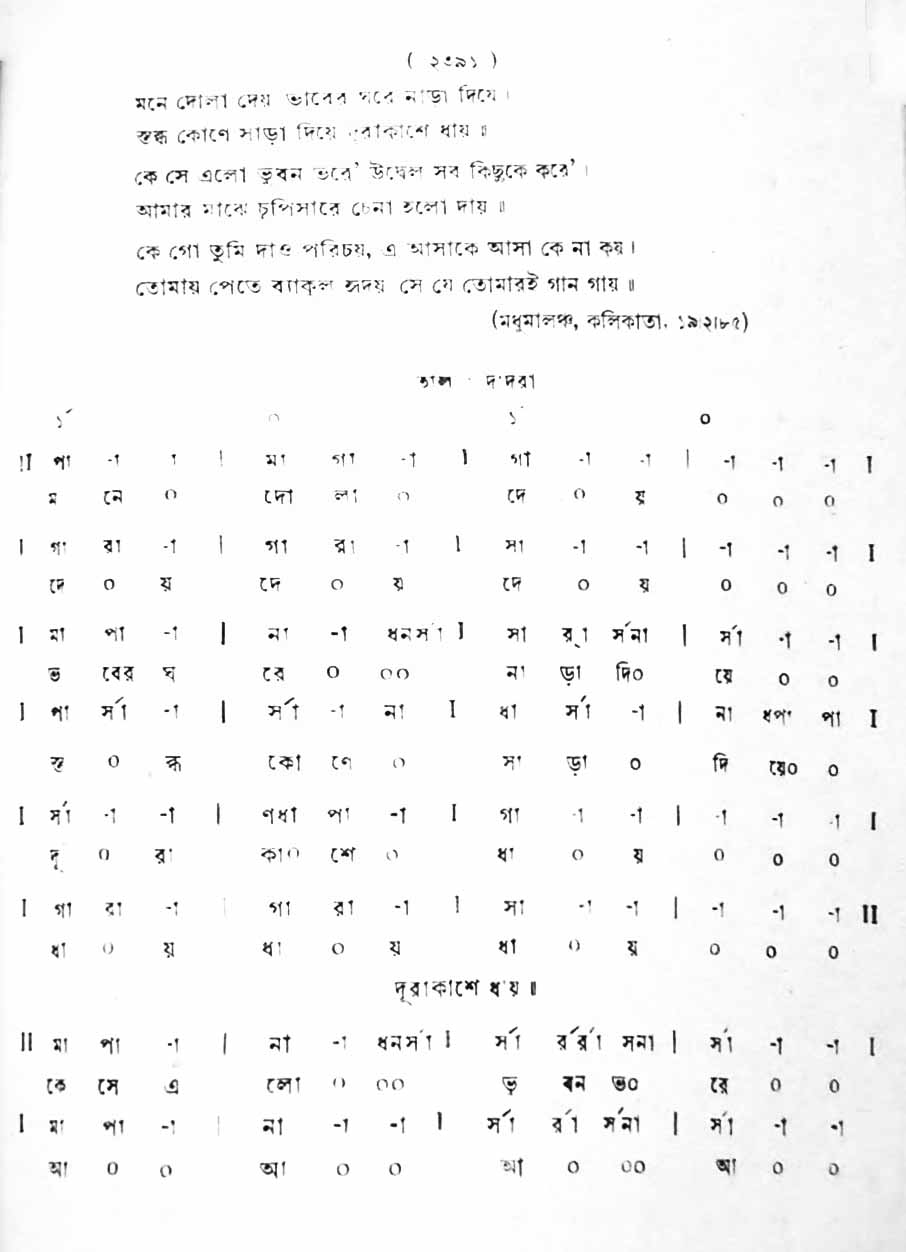 ( ২৩৯১ )
মনে দোলা দেয় ভাবের ঘরে নাড়া দিয়ে ।
স্তব্ধ কোণে সাড়া দিয়ে দূরাকাশে ধায় ॥
কে সে এলো ভুবন ভরে' উদ্বেল সব কিছুকে করে' ।
আমার মাঝে চুপিসারে চেনা হলো দায় ॥
কে গো তুমি দাও পরিচয়, এ আসাকে আসা কে না কয় ।
তোমায় পেতে ব্যাকুল হৃদয় সে যে তোমারই গান গায় ॥
(মধুমালঞ্চ, কলিকাতা, ১৯।২।৮৫)
তাল - দাদরা
১´ ০ ১´ ০
II পা -া া | মা গা -া I গা -া -া | -া -া -া I
ম নে ০ দো লা ০ দে ০ য় ০ ০ ০
I গা রা -া | গা রা -া I সা -া -া | -া -া -া I
দে ০ য় দে ০ য় দে ০ য় ০ ০ ০
I মা পা -া | না -া ধনর্সা I র্সা র্রা র্সনা | র্সা -া -া I
ভ বের ঘ রে ০ ০০ না ড়া দি০ য়ে ০ ০
I পা র্সা -া | র্সা -া না I ধা র্সা -া | না ধপা পা I
স্ত ০ ব্ধ কো ণে ০ সা ড়া ০ দি য়ে০ ০
I র্সা -া -া | ণধা পা -া I গা -া -া | -া -া -া I
দূ ০ রা কা০ শে ০ ধা ০ য় ০ ০ ০
I গা রা -া | গা রা -া I সা -া -া | -া -া -া II
ধা ০ য় ধা ০ য় ধা ০ য় ০ ০ ০
দূরাকাশে ধায় ॥
II মা পা -া | না -া ধনর্সা I র্সা র্রর্রা সনা | র্সা -া -া I
কে সে এ লো ০ ০০ ভু বন ভ০ রে ০ ০
I মা পা -া | না -া -া I র্সা র্রা র্সনা | র্সা -া -া
আ ০ ০ আ ০ ০ আ ০ ০০ আ ০ ০